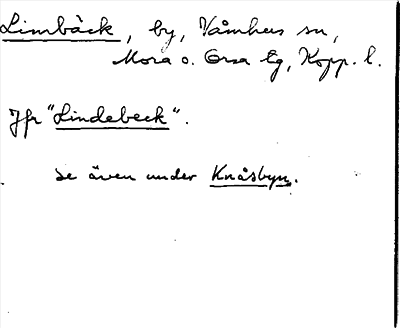 Limbäck, by, Våmhus sn,
Mora o. Orsa tg, Kopp. l.
Jfr "Lindebeck".
se även under Knåsbyn.